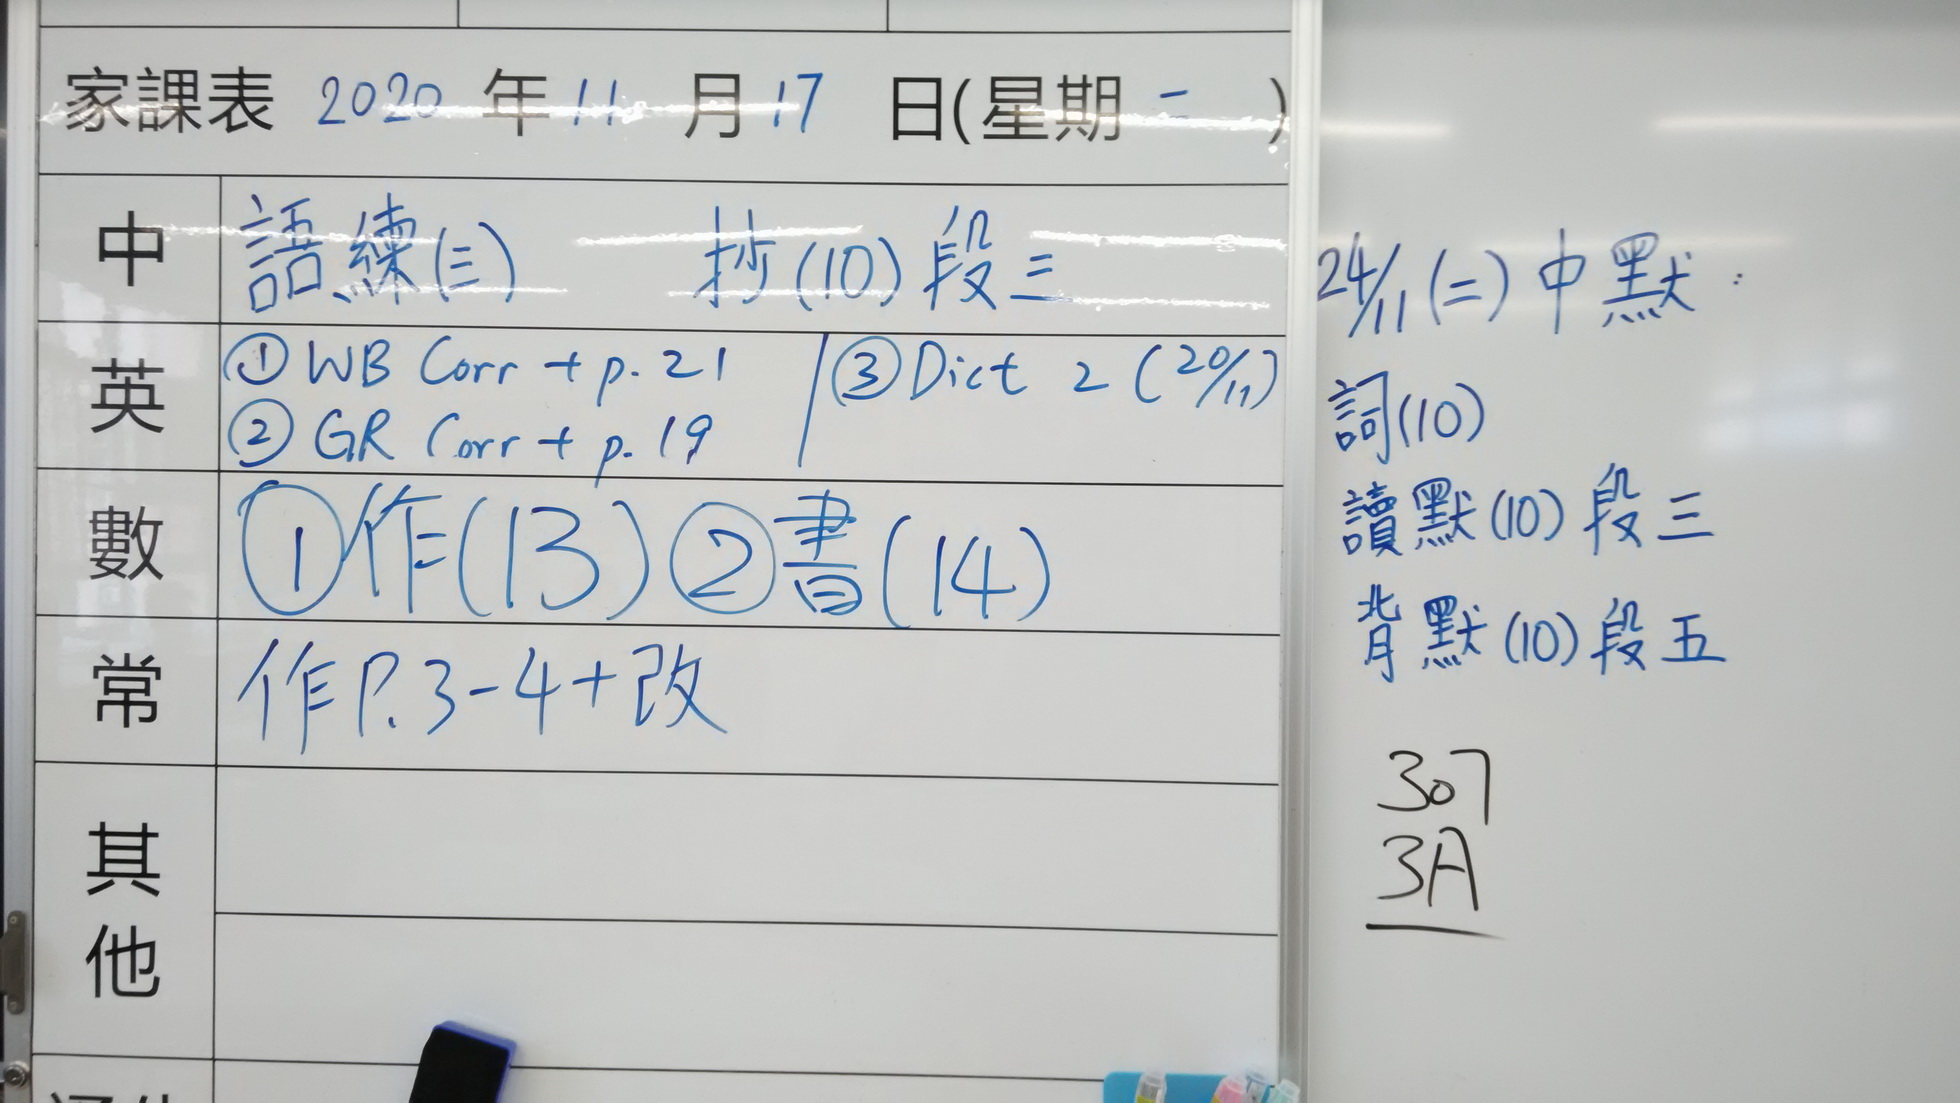 家課表 2020 年 11 月 17 日(星期 二 )
中 語練(三) 抄(10)段三
英 ① WB Corr + p. 21 ③ Dict 2 (20/11)
② GR Corr + p. 19
數 ①作(13)②書(14)
常 作P.3-4+改
其他
24/11(二)中默:
詞(10)
讀默(10)段三
背默(10)段五
307
3A